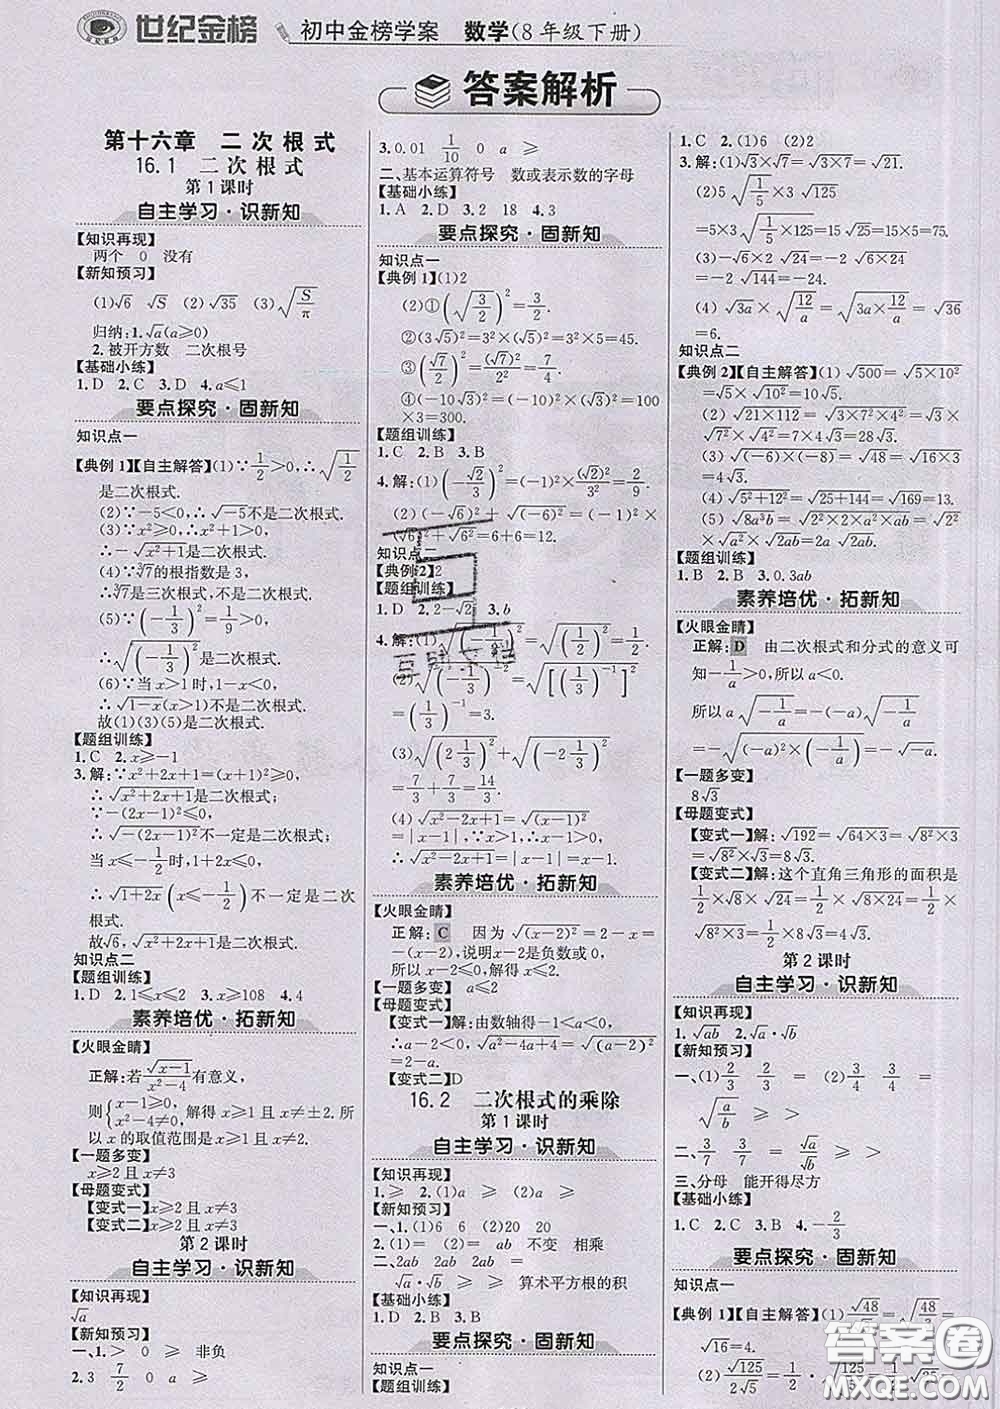 世纪金榜 初中金榜学案 数学(8年级下册)
答案解析
第十六章 二次根式
16.1 二次根式
第1课时
自主学习·识新知
【知识再现】
两个 0 没有
【新知预习】
(1)√6 √S (2)√35 (3)√(S/π)
归纳:1.√a(a≥0)
2.被开方数 二次根号
【基础小练】
1.D 2.C 3.D 4.a≤1
要点探究·固新知
知识点一
【典例1】【自主解答】(1)∵1/2>0,∴√(1/2)
是二次根式.
(2)∵-5<0,∴√-5不是二次根式.
(3)∵x²≥0,∴x²+1>0,
∴-√(x²+1)是二次根式.
(4)∵∛7的根指数是3,
∴∛7是三次根式,不是二次根式.
(5)∵(-1/3)²=1/9>0,
∴√((-1/3)²)是二次根式.
(6)∵当x>1时,1-x<0,
∴√(1-x)(x>1)不是二次根式.
故(1)(3)(5)是二次根式.
【题组训练】
1.C 2.x≥-1
3.解:∵x²+2x+1=(x+1)²≥0,
∴√(x²+2x+1)是二次根式.
∵-(2x-1)²≤0,
∴√(-(2x-1)²)不一定是二次根式;
当x≤-1/2时,1+2x≤0,
∴√(1+2x)(x≤-1/2)不一定是二次
根式.
故√6,√(x²+2x+1)是二次根式.
知识点二
【题组训练】
1.D 2.1≤x≤2 3.x≥108 4.4
素养培优·拓新知
【火眼金睛】
正解:若√(x-1)/(x²-4)有意义,
则{x-1≥0, x²-4≠0, 解得x≥1且x≠±2.所
以x的取值范围是x≥1且x≠2.
【一题多变】
x≥2且x≠3
【母题变式】
【变式一】x≥2且x≠3
【变式二】x≥2且x≠3
第2课时
自主学习·识新知
【知识再现】
√a
【新知预习】
一、1.> 0 ≥ 非负
2.3 7/2 0 a ≥
3.0.01 1/10 0 a ≥
二、基本运算符号 数或表示数的字母
【基础小练】
1.A 2.D 3.2 18 4.3
要点探究·固新知
知识点一
【典例1】(1)2
(2)①(√(3/2))²=3/2.
②(3√5)²=3²×(√5)²=3²×5=45.
③(√7/2)²=(√7)²/2²=7/4
④(-10√3)²=(-10)²×(√3)²=100
×3=300.
【题组训练】
1.C 2.B 3.B
4.解:(1)(-√2/3)²=(-1)²×(√2)²/3²=2/9.
(2)(-√6)²+√((-6)²)=(-1)²×
(√6)²+√(6²)=6+6=12.
知识点二
【典例2】2
【题组训练】
1.D 2.2-√2 3.b
4.解:(1)√((-1/2)²)=√((1/2)²)=1/2.
(3)√((2 1/3)²)+√((-2 1/3)²)
=7/3+7/3=14/3.
(4)√(x²-2x+1)=√((x-1)²)
=|x-1|,∵x>1,∴x-1>0,
∴√(x²-2x+1)=|x-1|=x-1.
素养培优·拓新知
【火眼金睛】
正解:C 因为√((x-2)²)=2-x=
-(x-2),说明x-2是负数或0,
所以x-2≤0,解得x≤2.
【一题多变】 a≤2
【母题变式】
【变式一】解:由数轴得-1<a<0,
∴a-2<0,√(a²-4a+4)=√((a-2)²)=
2-a.
【变式二】D
16.2 二次根式的乘除
第1课时
自主学习·识新知
【知识再现】
1.≥ 2.(1)a ≥ (2)a ≥
【新知预习】
一、1.(1)6 6 (2)20 20
2.(1)√ab ab 不变 相乘
二、2ab 2ab 2ab =
√a·√b ≥ ≥ 算术平方根的积
【基础小练】
1.B 2.D 3.B
要点探究·固新知
知识点一
【题组训练】
1.C 2.(1)6 (2)2
3.解:(1)√3×√7=√(3×7)=√21.
(2)5√(1/5)×3√125
=5×3√(1/5×125)=15×5=75.
(4)√(3a)×√(12/a)=√(3a×12/a)=√36
=6.
知识点二
【典例2】【自主解答】(1)√500=√(5×10²)
=√5×√(10²)=10√5.
(2)√(21×112)=√(3×7²×4²)=√3×
√(7²)×√(4²)=7×4√3=28√3.
(3)√((-6)×(-8))=√48=√(16×3)
=4√3.
(4)√(5²+12²)=√(25+144)=√169=13.
(5)√(8a³b)=√(2²×2×a²×ab)=√(2²)
×√(a²)×√(2ab)=2a√(2ab).
【题组训练】
1.B 2.B 3.0.3ab
素养培优·拓新知
【火眼金睛】
正解:D 由二次根式和分式的意义可
知-1/a>0,所以a<0.
所以a√(-1/a)=-(-a)√(-1/a)
=-√((-a)²×(-1/a))=-√-a.
【一题多变】
8√3
【母题变式】
【变式一】解:√192=√(64×3)=√(8²×3)
=√(8²)×√3=8√3.
【变式二】解:这个直角三角形的面积是
1/2×√8×√24=1/2×√(8×24)=1/2
×√(8²×3)=4√3.
第2课时
自主学习·识新知
【知识再现】
1.√ab 2.√a·√b
【新知预习】
一、(1)2/3 2/3 = (2)3/4 3/4 =
√(a/b) ≥ >
二、3/7 3/7 = √a/√b ≥ >
三、分母 能开得尽方
【基础小练】
1.C 2.C 3.B 4.-2/3
要点探究·固新知
知识点一
【典例1】【自主解答】(1)√48/√3=√(48/3)=
√16=4.
答案圈
MXQE.COM